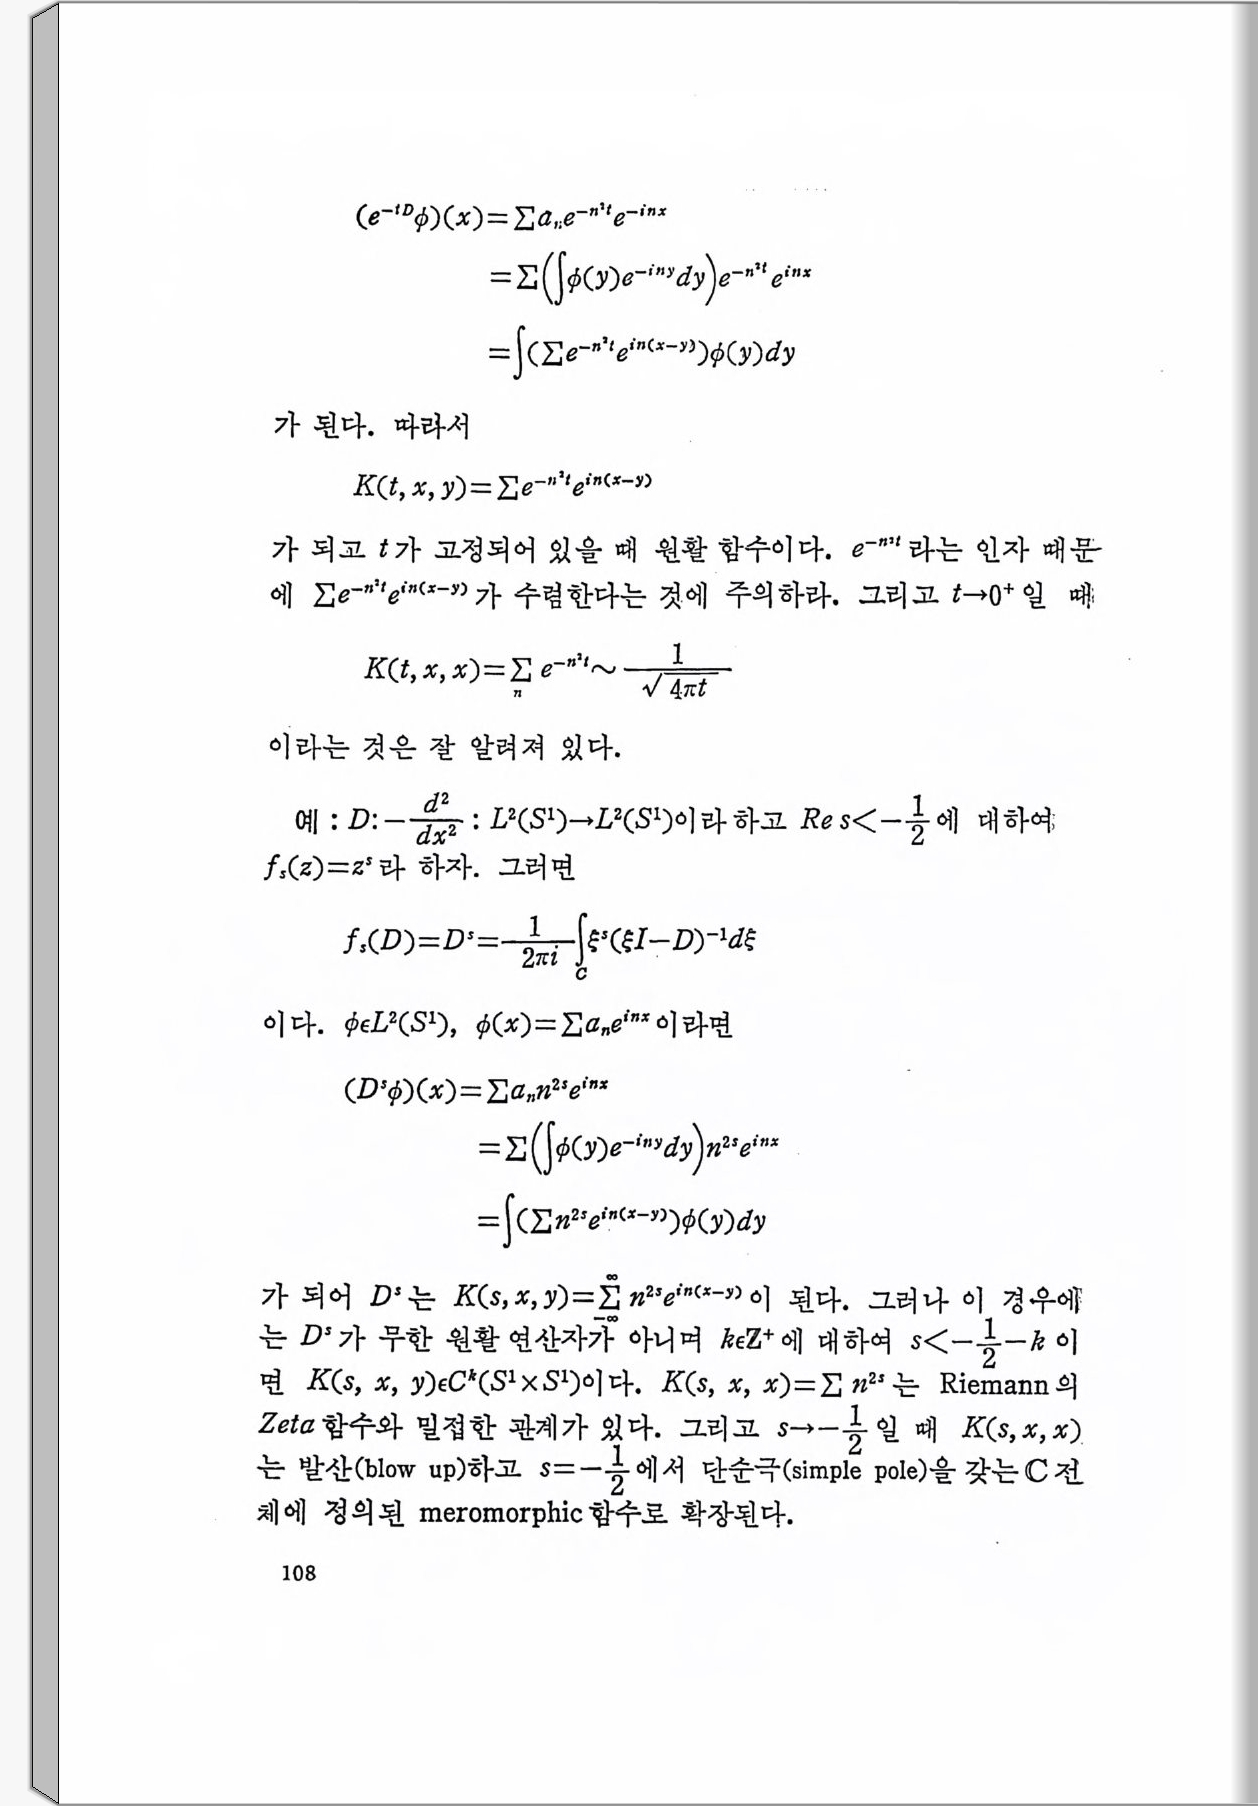 (e⁻ᵗᴰϕ)(x)=∑aₙe^{−n²t}e^{−inx}
=∑(∫ϕ(y)e^{−iny}dy)e^{−n²t}e^{inx}
=∫(∑e^{−n²t}e^{in(x−y)})ϕ(y)dy
가 된다. 따라서
K(t, x, y)=∑e^{−n²t}e^{in(x−y)}
가 되고 t가 고정되어 있을 때 원활 함수이다. e^{−n²t}라는 인자 때문
에 ∑e^{−n²t}e^{in(x−y)}가 수렴한다는 것에 주의하라. 그리고 t→0⁺일 때
K(t, x, x)=∑_n e^{−n²t}∼1/√(4πt)
이라는 것은 잘 알려져 있다.
예 : D: −d²/dx² : L²(S¹)→L²(S¹)이라 하고 Re s<−1/2에 대하여
f_s(z)=z^s라 하자. 그러면
f_s(D)=D^s=1/(2πi)∫_C ξ^s(ξI−D)⁻¹dξ
이다. ϕϵL²(S¹), ϕ(x)=∑aₙe^{inx}이라면
(D^sϕ)(x)=∑aₙn^{2s}e^{inx}
=∑(∫ϕ(y)e^{−iny}dy)n^{2s}e^{inx}
=∫(∑n^{2s}e^{in(x−y)})ϕ(y)dy
가 되어 D^s는 K(s, x, y)=∑_{−∞}^{∞} n^{2s}e^{in(x−y)}이 된다. 그러나 이 경우에
는 D^s가 무한 원활 연산자가 아니며 kϵZ⁺에 대하여 s<−1/2−k 이
면 K(s, x, y)ϵC^k(S¹×S¹)이다. K(s, x, x)=∑ n^{2s}는 Riemann의
Zeta 함수와 밀접한 관계가 있다. 그리고 s→−1/2일 때 K(s, x, x)
는 발산(blow up)하고 s=−1/2에서 단순극(simple pole)을 갖는 ℂ 전
체에 정의된 meromorphic 함수로 확장된다.
108